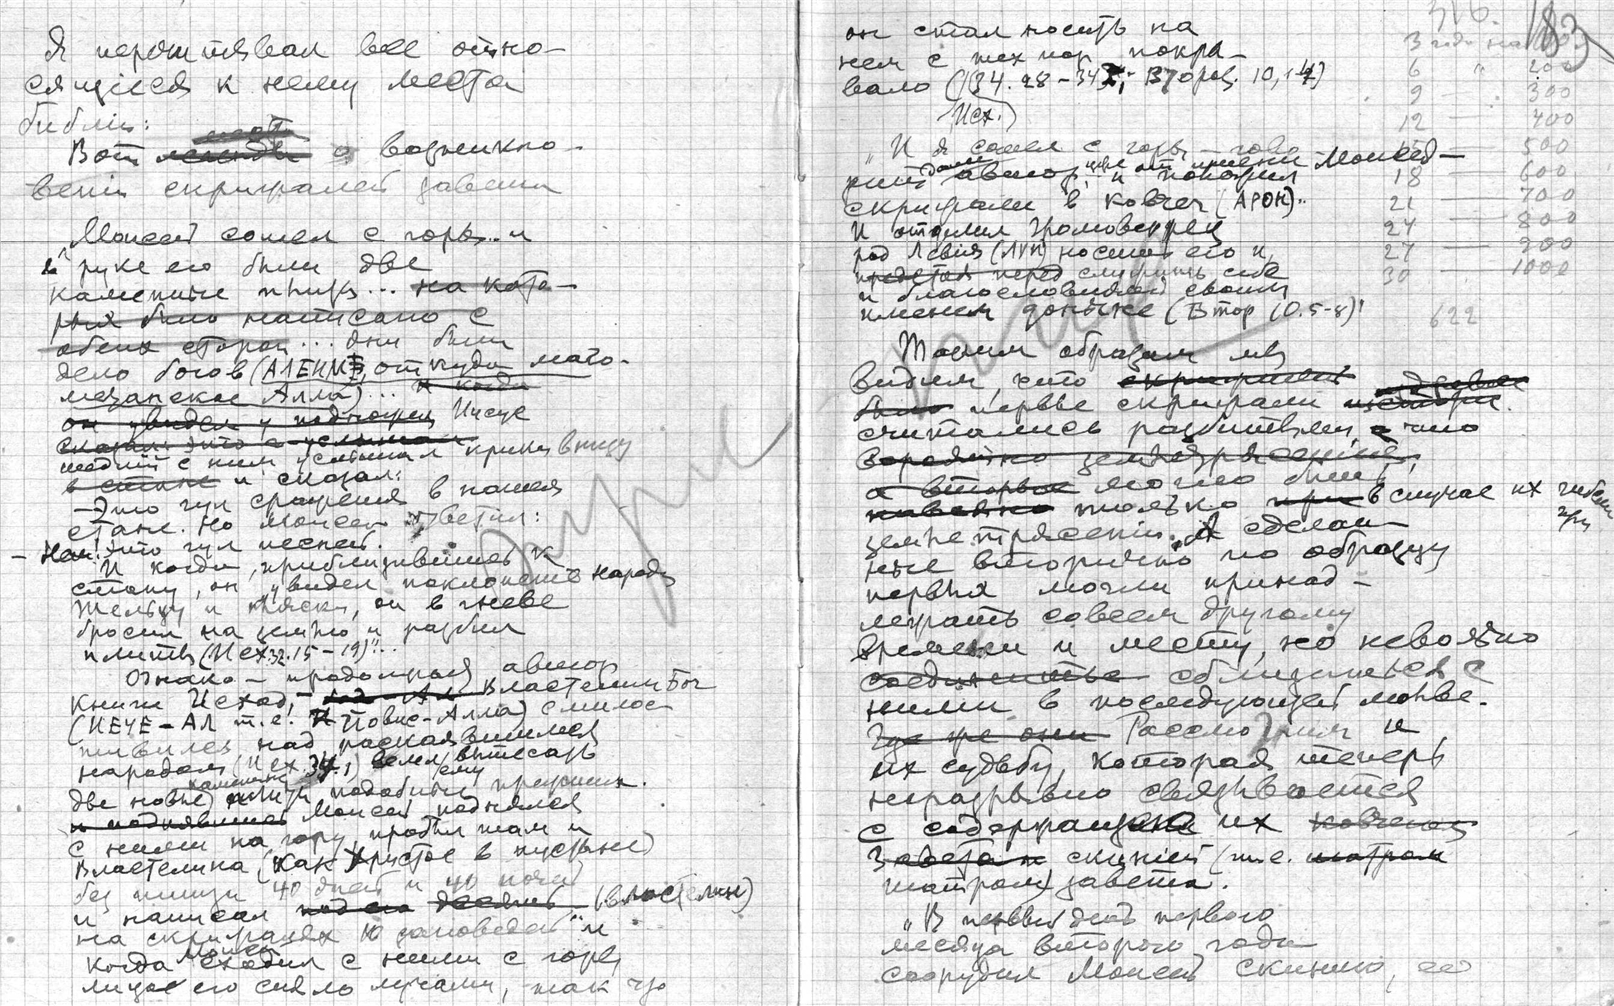 Я перечитывал все отно-
сящиеся к нему места
библии:
Вот о возникно-
вении скрижалей завета
Моисей сошел с горы... и
в руке его были две
каменные плиты... на кото-
рых было написано с
обеих сторон... они были
дело богов (АЛЕИМ, откуда маго-
метанское Алла)... и когда
он увидел Иисус
шедший с ним услышал крики внизу
в стане и сказал:
— Это гул сражения в нашем
стане. Но Моисей ответил:
— Нет! это гул песней.
И когда, приблизившись к
стану, он увидел поклонение народа
тельцу и пляски, он в гневе
бросил на землю и разбил
плиты (Исх. 32. 15–19)"...
Однако — продолжает автор
книги Исход, — Властелин Бог
(ИЕУЕ-АЛ т.е. Йовис-Алла) смило-
стивился над раскаявшимся
народом (Исх. 34,1) велел ему вытесать
две новые каменные плиты подобные прежним.
Моисей поднялся
с ними на гору, пробыл там у
Властелина (как Христос в пустыне)
без пищи 40 дней и 40 ночей
и написал (властелин)
на скрижалях 10 заповедей" и
когда Моисей сходил с ними с горы
лицо его сияло лучами, так что
он стал носить на
нем с тех пор покры-
вало (34. 28–34; Второз. 10, 1
Исх.)
"И я сошел с горы — гово-
рит далее автор уже от имени Моисея —
и положил
скрижали в ковчег (АРОН)..
И отделил Громовержец
род Левия (ЛУИ) носить его и,
предстоя перед служить себе
и благословлять своим
именем доныне (Втор 10. 5-8)!
Таким образом мы
видим, что
первые скрижали
считались разбитыми, что
могло быть
только в случае их гибели
при
землетрясении. А сделан-
ные вторично по образцу
первых могли принад-
лежать совсем другому
времени и месту, но
сблизиться с
ними в последующей молве.
Где же они Рассмотрим и
их судьбу, которая теперь
неразрывно связывается
с содержащею их ковчегом
Завета и скинией (т.е. шатром
шатром) завета.
"В первый день первого
месяца второго года
соорудил Моисей скинию, ее
316.
183
3 года на
6 " 200
9 — 300
12 — 400
15 — 500
18 — 600
21 — 700
24 — 800
27 — 900
30 — 1000
622